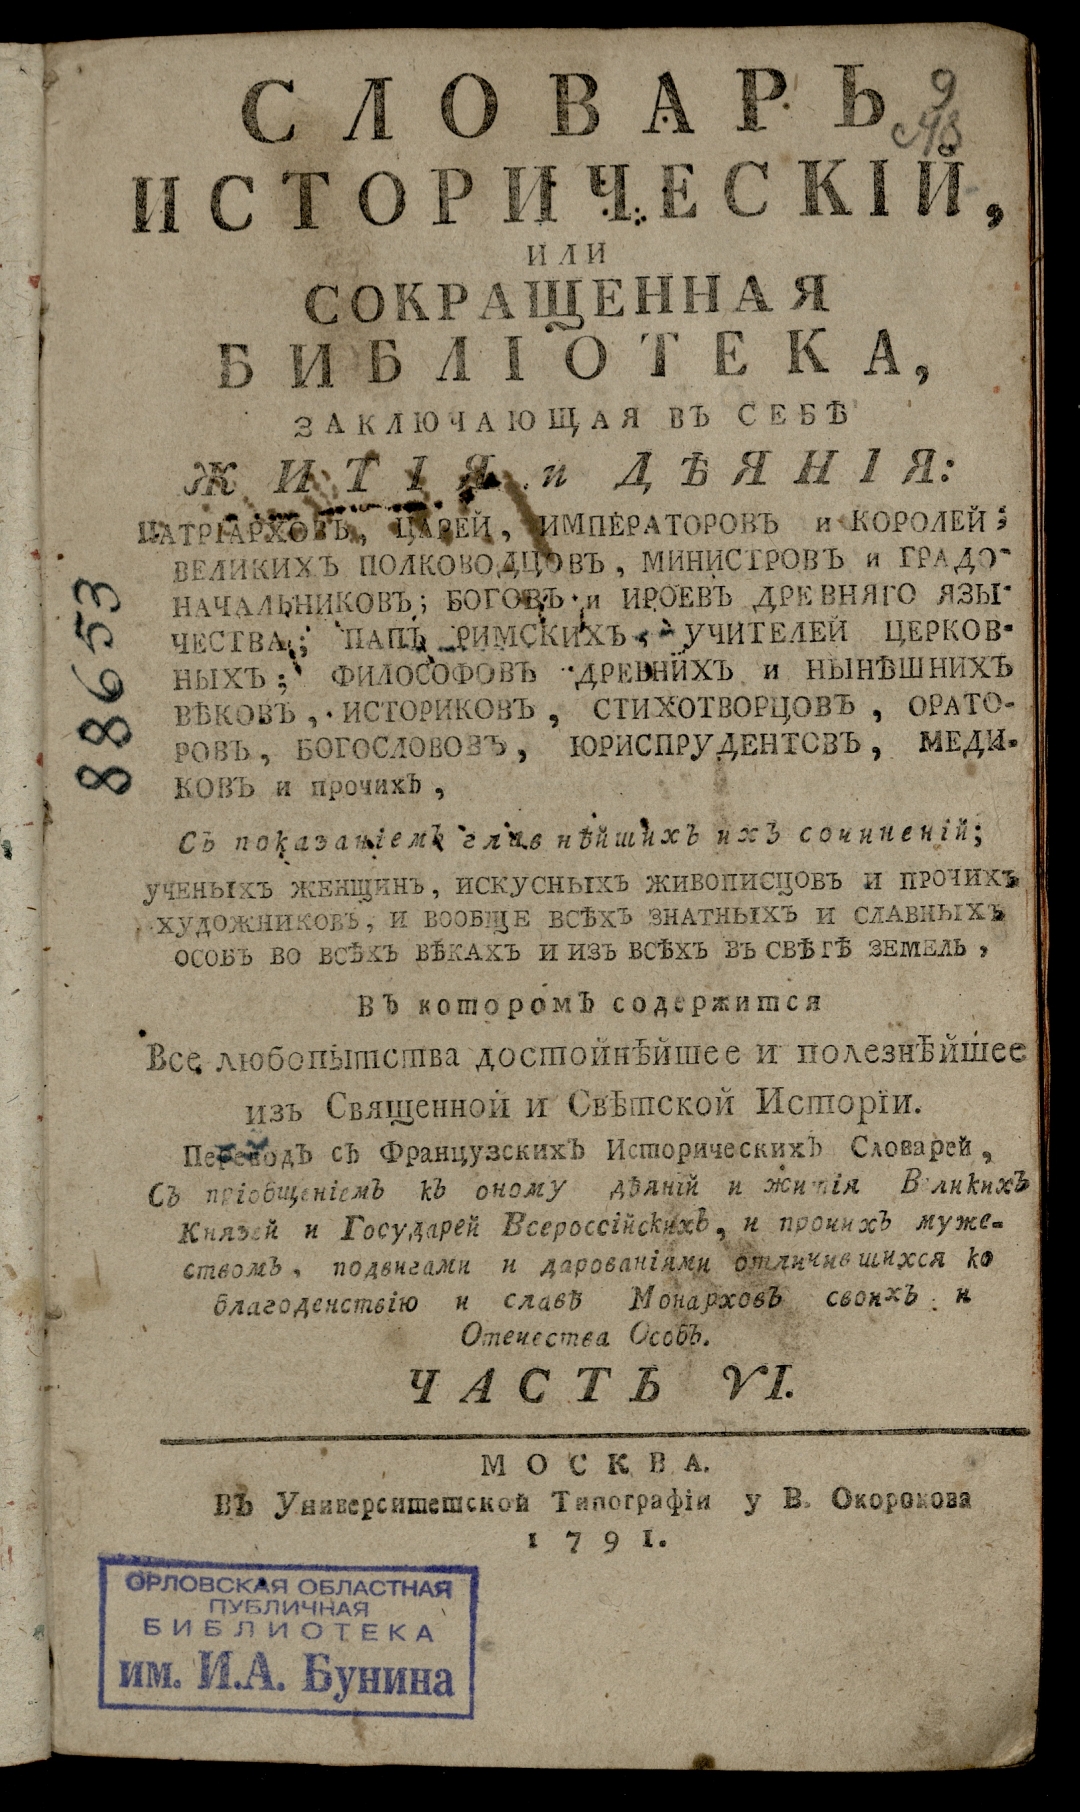 СЛОВАРЬ
ИСТОРИЧЕСКІЙ,
ИЛИ
СОКРАЩЕННАЯ
БИБЛІОТЕКА,
ЗАКЛЮЧАЮЩАЯ ВЪ СЕБѢ
ЖИТІЯ и ДѢЯНІЯ:
ПАТРІАРХОВЪ, ЦАРЕЙ, ИМПЕРАТОРОВЪ и КОРОЛЕЙ;
ВЕЛИКИХЪ ПОЛКОВОДЦОВЪ, МИНИСТРОВЪ и ГРАДО-
НАЧАЛЬНИКОВЪ; БОГОВЪ и ИРОЕВЪ ДРЕВНЯГО ЯЗЫ-
ЧЕСТВА; ПАПЪ РИМСКИХЪ, УЧИТЕЛЕЙ ЦЕРКОВ-
НЫХЪ; ФИЛОСОФОВЪ ДРЕВНИХЪ и НЫНѢШНИХЪ
ВѢКОВЪ, ИСТОРИКОВЪ, СТИХОТВОРЦОВЪ, ОРАТО-
РОВЪ, БОГОСЛОВОВЪ, ЮРИСПРУДЕНТОВЪ, МЕДИ-
КОВЪ и прочихъ,
Съ показаніемъ главнѣйшихъ ихъ сочиненій;
УЧЕНЫХЪ ЖЕНЩИНЪ, ИСКУСНЫХЪ ЖИВОПИСЦОВЪ И ПРОЧИХЪ
ХУДОЖНИКОВЪ, И ВООБЩЕ ВСѢХЪ ЗНАТНЫХЪ И СЛАВНЫХЪ
ОСОБЪ ВО ВСѢХЪ ВѢКАХЪ И ИЗЪ ВСѢХЪ ВЪ СВѢТѢ ЗЕМЕЛЬ,
Въ которомъ содержится
Все любопытства достойнѣйшее и полезнѣйшее
изъ Священной и Свѣтской Исторіи.
Переводъ съ Французскихъ Историческихъ Словарей,
Съ пріобщеніемъ къ оному дѣяній и житія Великихъ
Князей и Государей Всероссійскихъ, и прочихъ муже-
ствомъ, подвигами и дарованіями отличившихся ко
благоденствію и славѣ Монарховъ своихъ и
Отечества Особъ.
ЧАСТЬ VI.
МОСКВА.
Въ Университетской Типографіи у В. Окорокова
1791.
88653
ОРЛОВСКАЯ ОБЛАСТНАЯ
ПУБЛИЧНАЯ
БИБЛИОТЕКА
им. И.А. Бунина